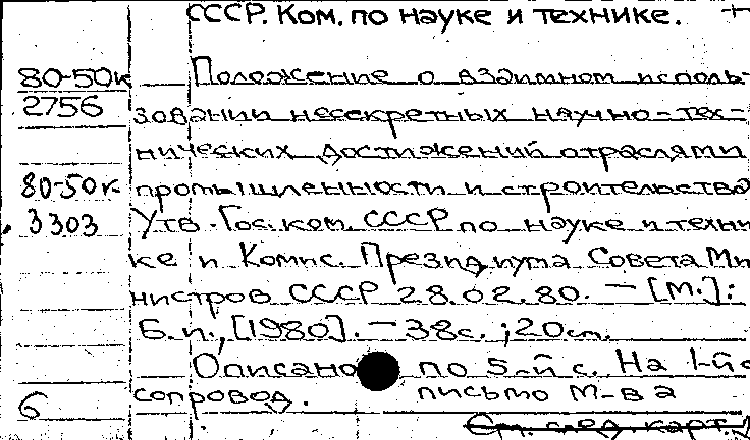 СССР. Ком. по науке и технике. +
80-50к Положение о взаимном исполь-
2756 зовании несекретных научно-тех-
нических достижений отраслями
80-50к промышленности и строительства
3303 Утв. Гос. ком. СССР по науке и техни
ке и Комис. Президиума Совета Ми
нистров СССР 28.02.80. — [М.]:
Б.и., [1980]. — 38с.; 20см.
Описано по 5-й с. На 1-й с
6 сопровод. письмо М-ва
См. след. карт.